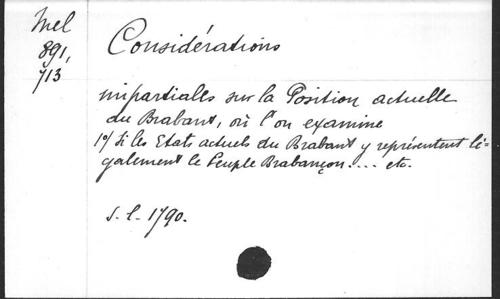 Mel
891,
713
Considérations
impartiales sur la Position actuelle
du Brabant, où l'on examine
1°/ Si les Etats actuels du Brabant y représentent lé-
galement le Peuple Brabançon.... etc.
s. l. 1790.